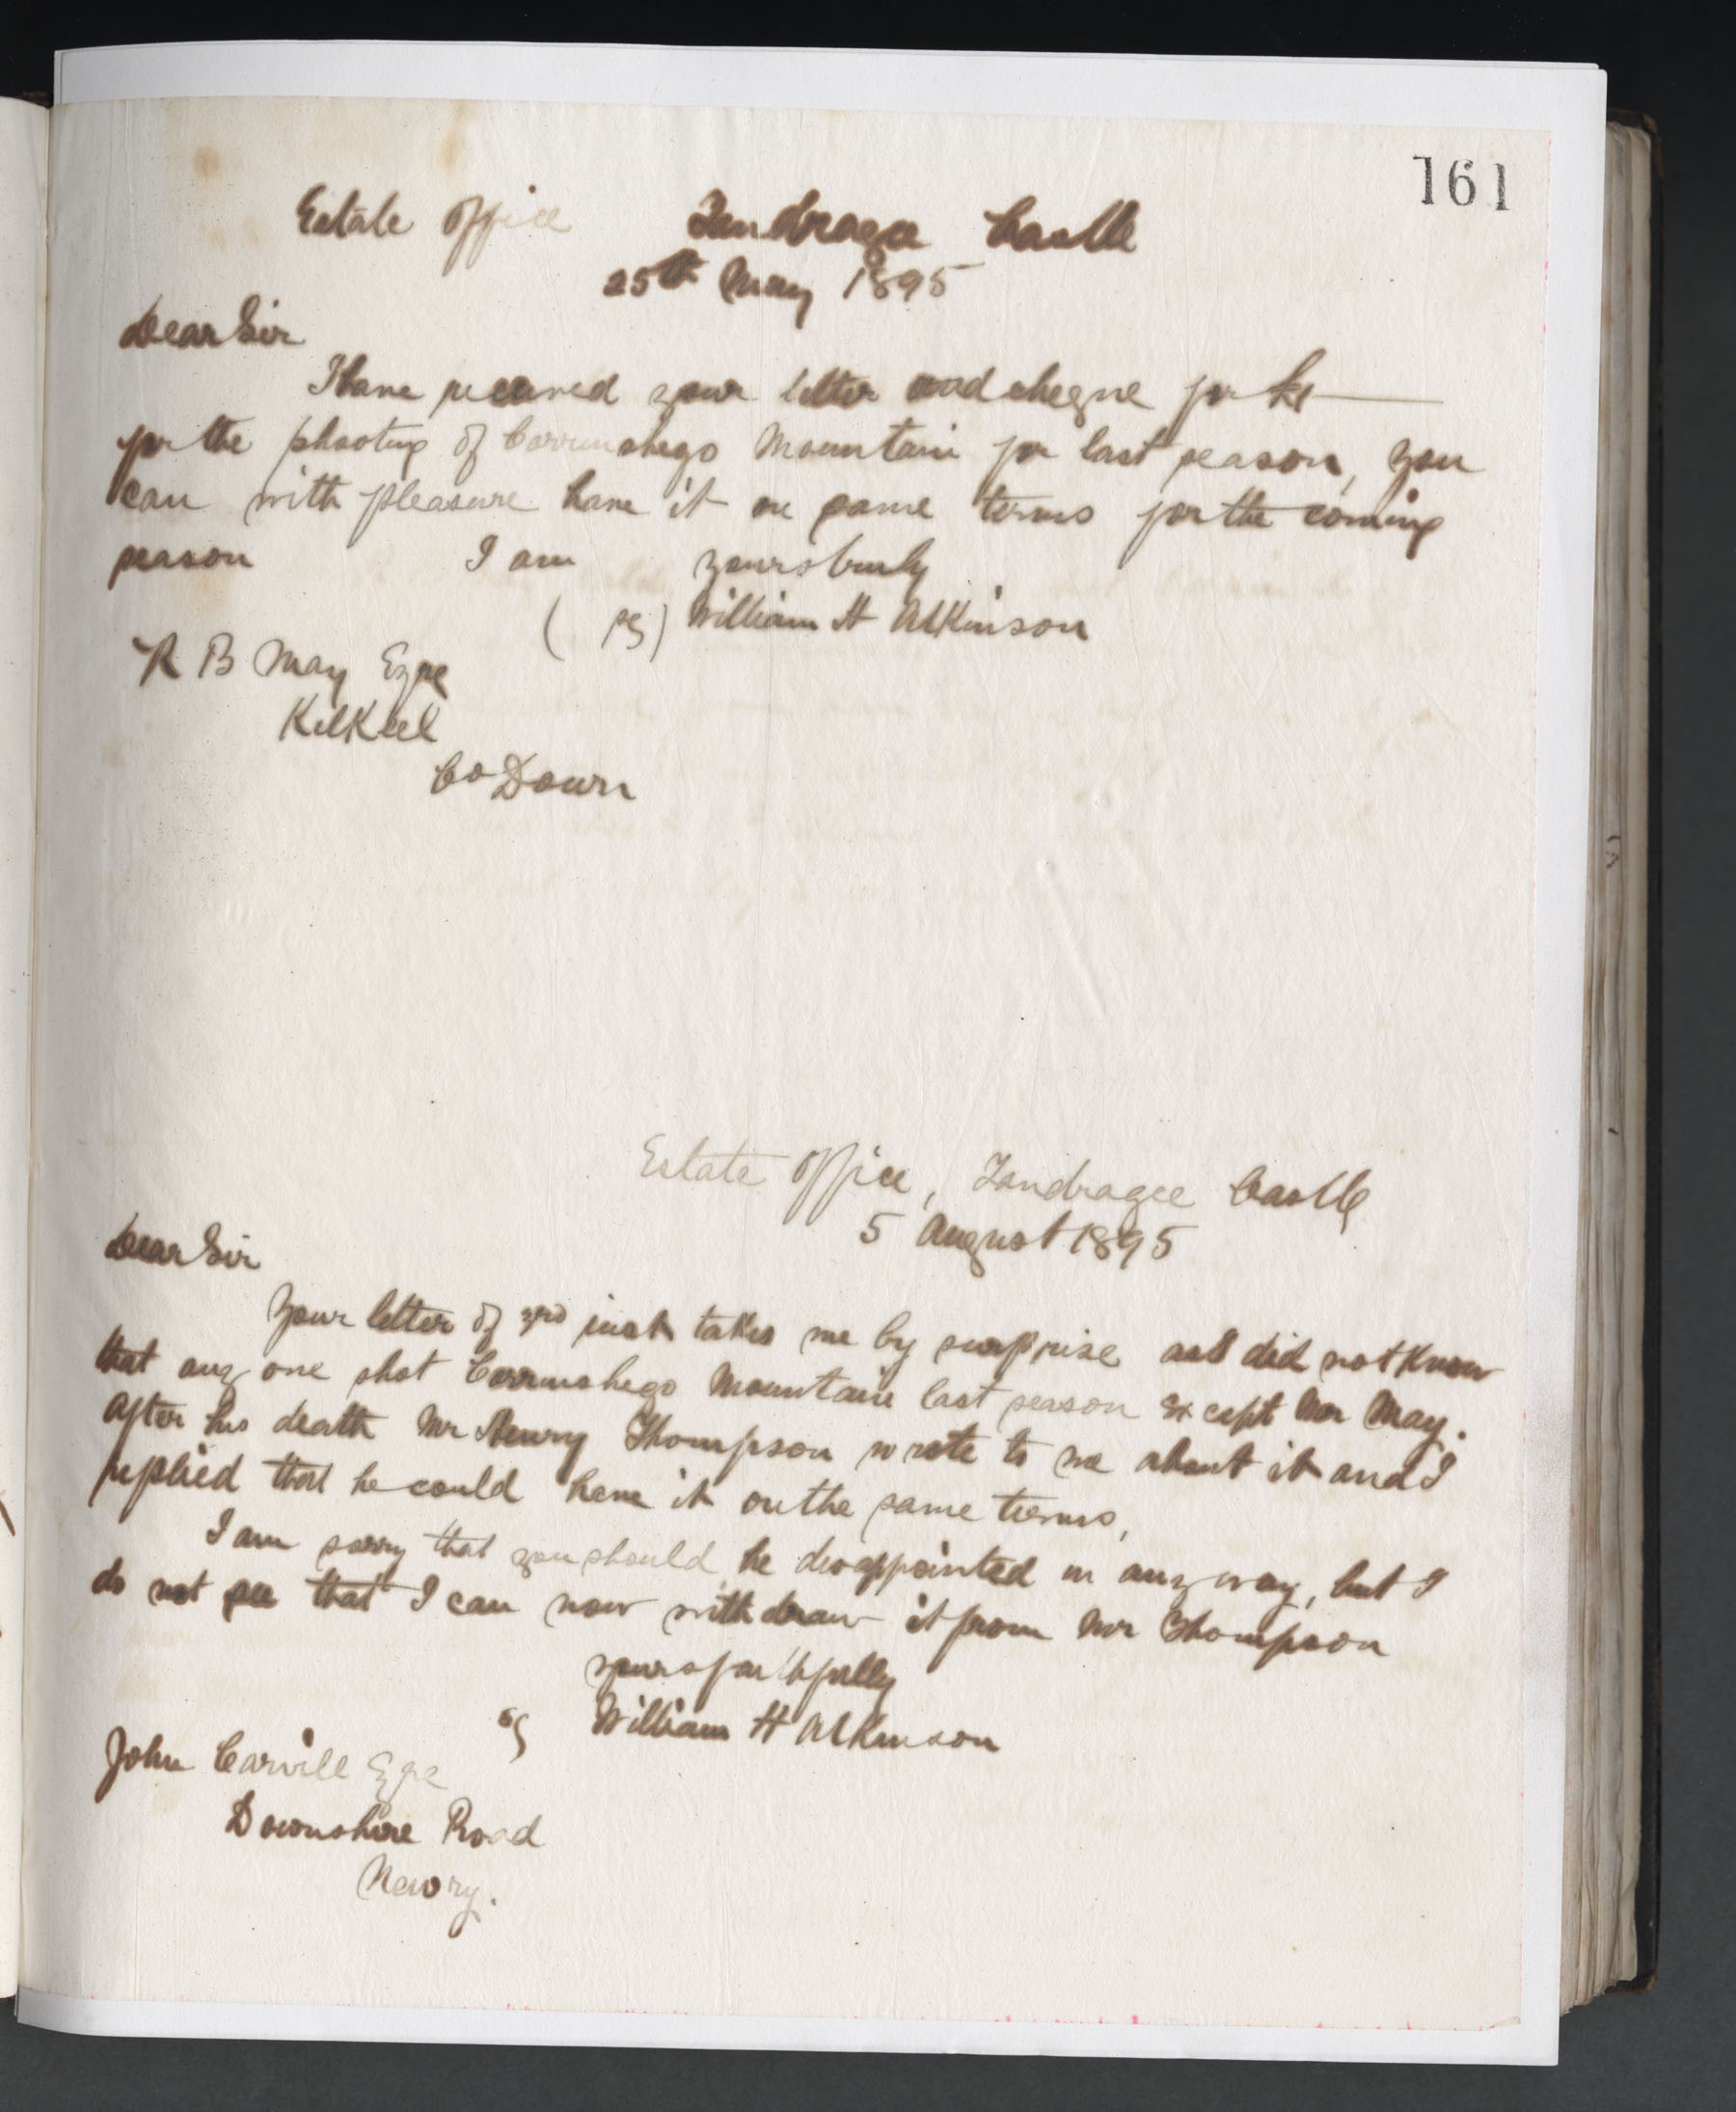 161
Estate Office Tandragee Castle
25th May 1895
Dear Sir
I have received your letter and cheque for
for the shooting of Carrinshego Mountain for last season, you
can with pleasure have it on same terms for the coming
season I am yours truly
( sg) William H Atkinson
R B May Esqre
Kilkeel
Co Down
Estate Office, Tandragee Castle
5 August 1895
Dear Sir
Your letter of 3rd inst takes me by surprise as I did not know
that any one shot Carrinshego Mountain last season except Mr May.
After his death Mr Henry Thompson wrote to me about it and I
replied that he could have it on the same terms,
I am sorry that you should be disappointed in any way, but I
do not see that I can now withdraw it from Mr Thompson
yours faithfully
sg William H Atkinson
John Carvill Esqre
Downshire Road
Newry.